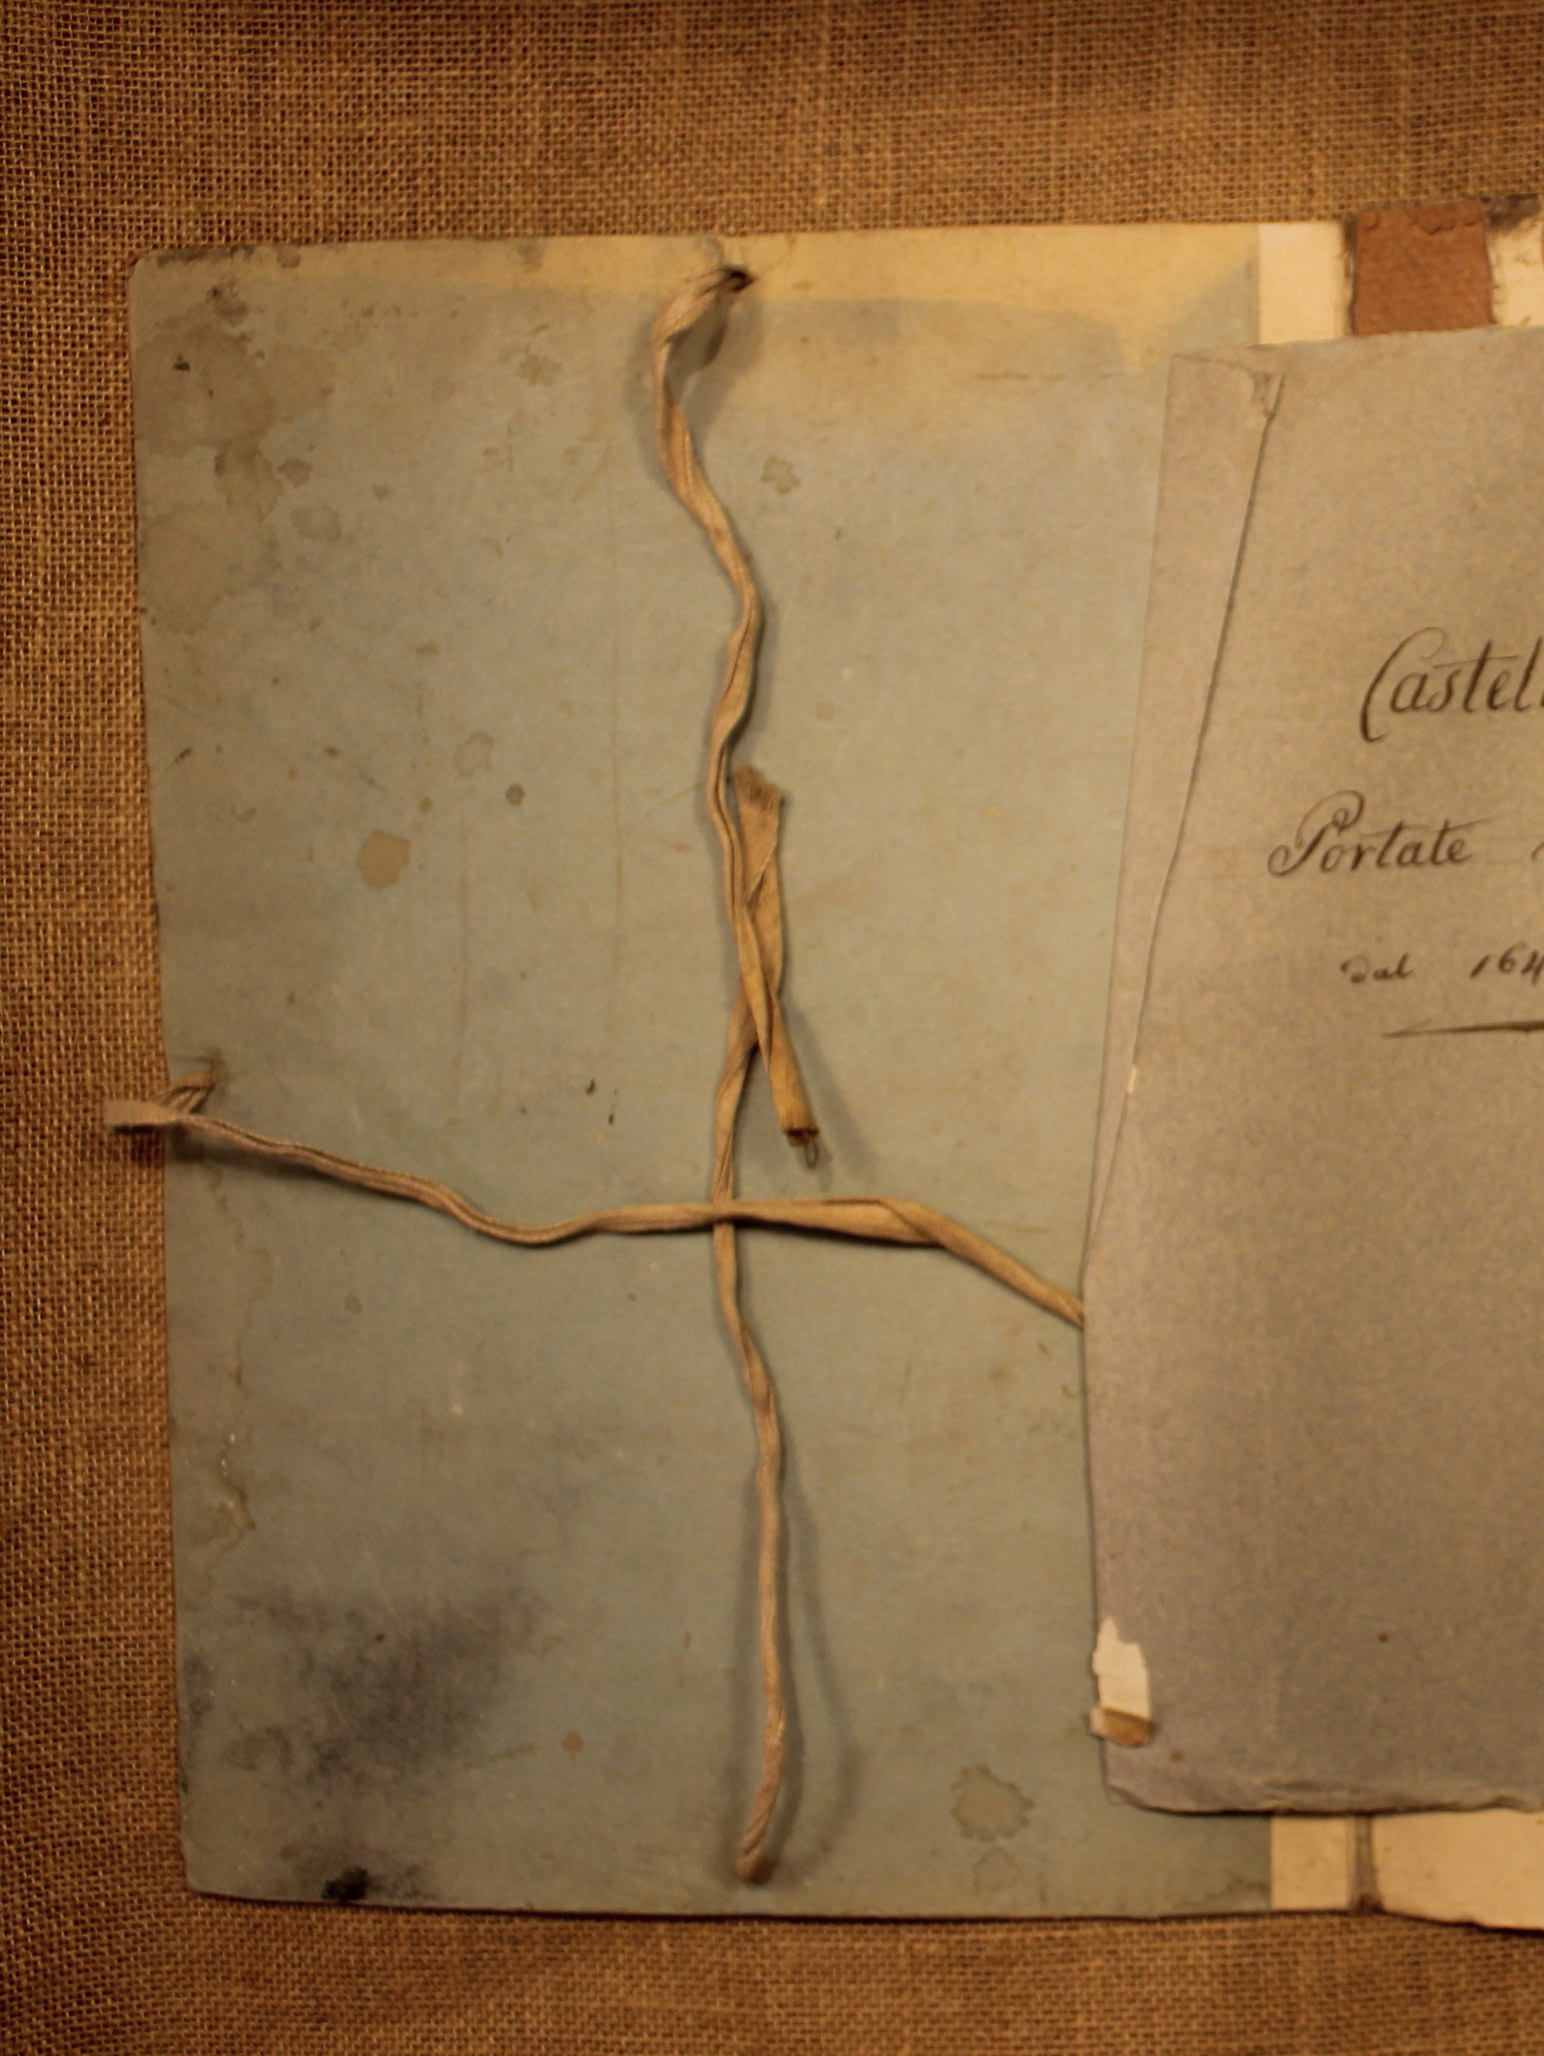 Castel
Portate
dal 164